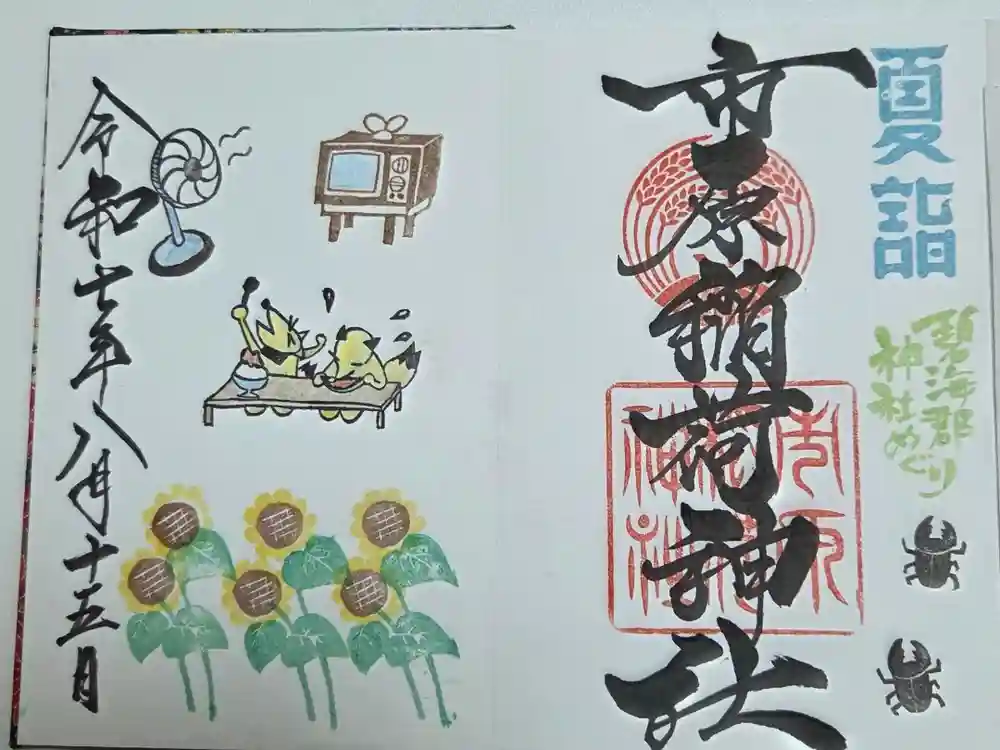 夏詣
碧海郡
神社めぐり
市原稲荷神社
令和七年八月十五日